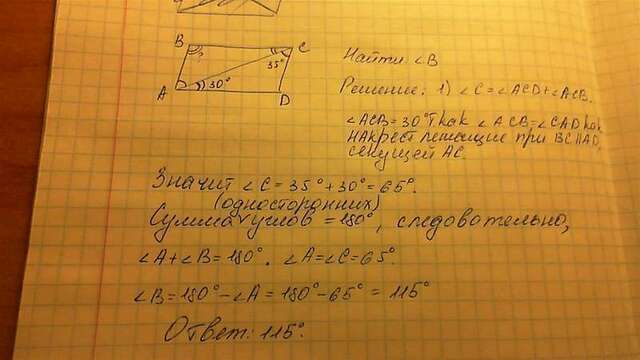 B
C
35°
A
30°
D
Найти ∠B
Решение: 1) ∠C=∠ACD+∠ACB.
∠ACB=30° Т как ∠ACB=∠CAD как
накрест лежащие при BC||AD,
секущей AC.
Значит ∠C=35°+30°=65°.
(односторонних)
Сумма углов =180°, следовательно,
∠A+∠B=180°. ∠A=∠C=65°.
∠B=180°-∠A=180°-65°=115°
Ответ: 115°.